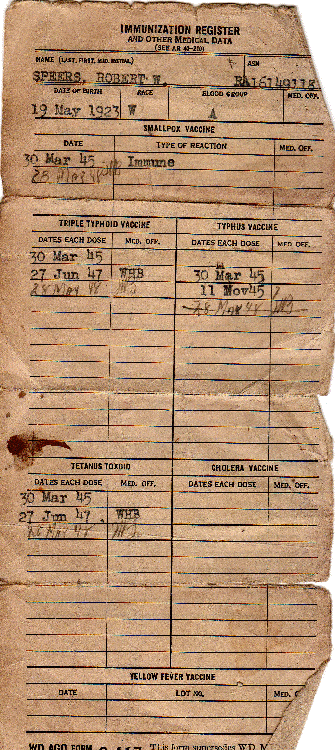 IMMUNIZATION REGISTER
AND OTHER MEDICAL DATA
(SEE AR 40-210)
NAME (LAST, FIRST, MID. INITIAL) ASN
SPEERS, ROBERT W. RA16149118
DATE OF BIRTH RACE BLOOD GROUP MED. OFF.
19 May 1923 W A
SMALLPOX VACCINE
DATE TYPE OF REACTION MED. OFF.
30 Mar 45 Immune
25 May 48
TRIPLE TYPHOID VACCINE TYPHUS VACCINE
DATES EACH DOSE MED. OFF. DATES EACH DOSE MED OFF.
30 Mar 45
27 Jun 47 WHB 30 Mar 45
28 May 48 11 Nov45
28 May 48
TETANUS TOXOID CHOLERA VACCINE
DATES EACH DOSE MED. OFF. DATES EACH DOSE MED. OFF.
30 Mar 45
27 Jun 47 WHB
May 47
YELLOW FEVER VACCINE
DATE LOT NO. MED.
WD AGO FORM This form supersedes WD